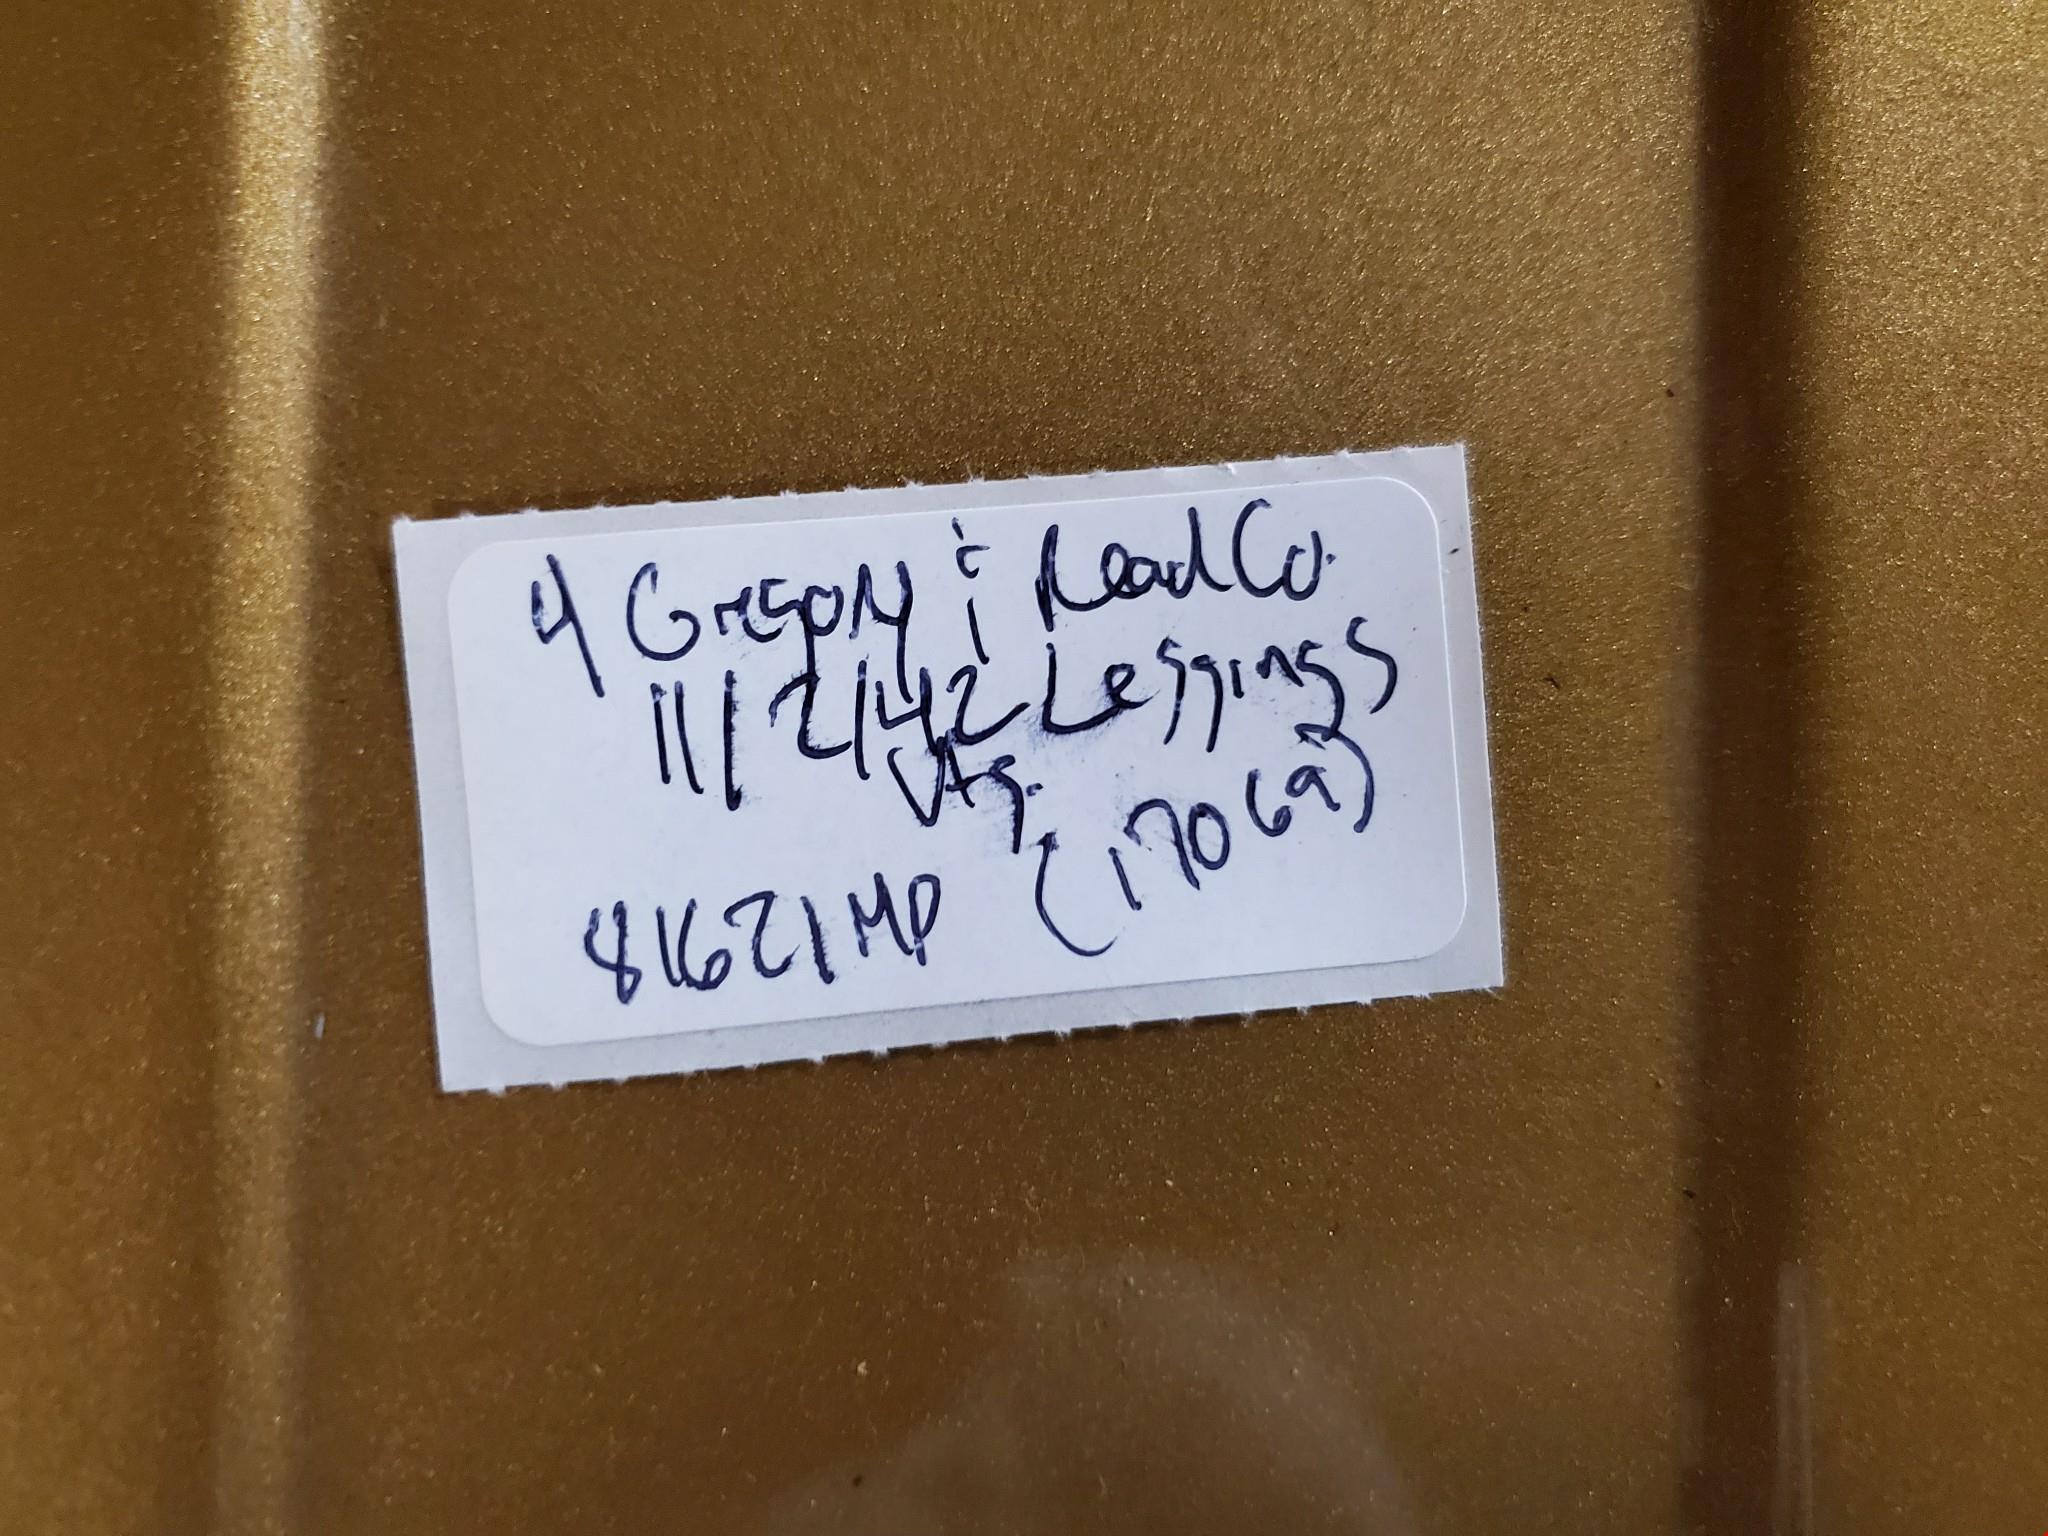 4 Gregory & Read Co.
11/2/42 Leggings
Vtg.
81621MP (17069)